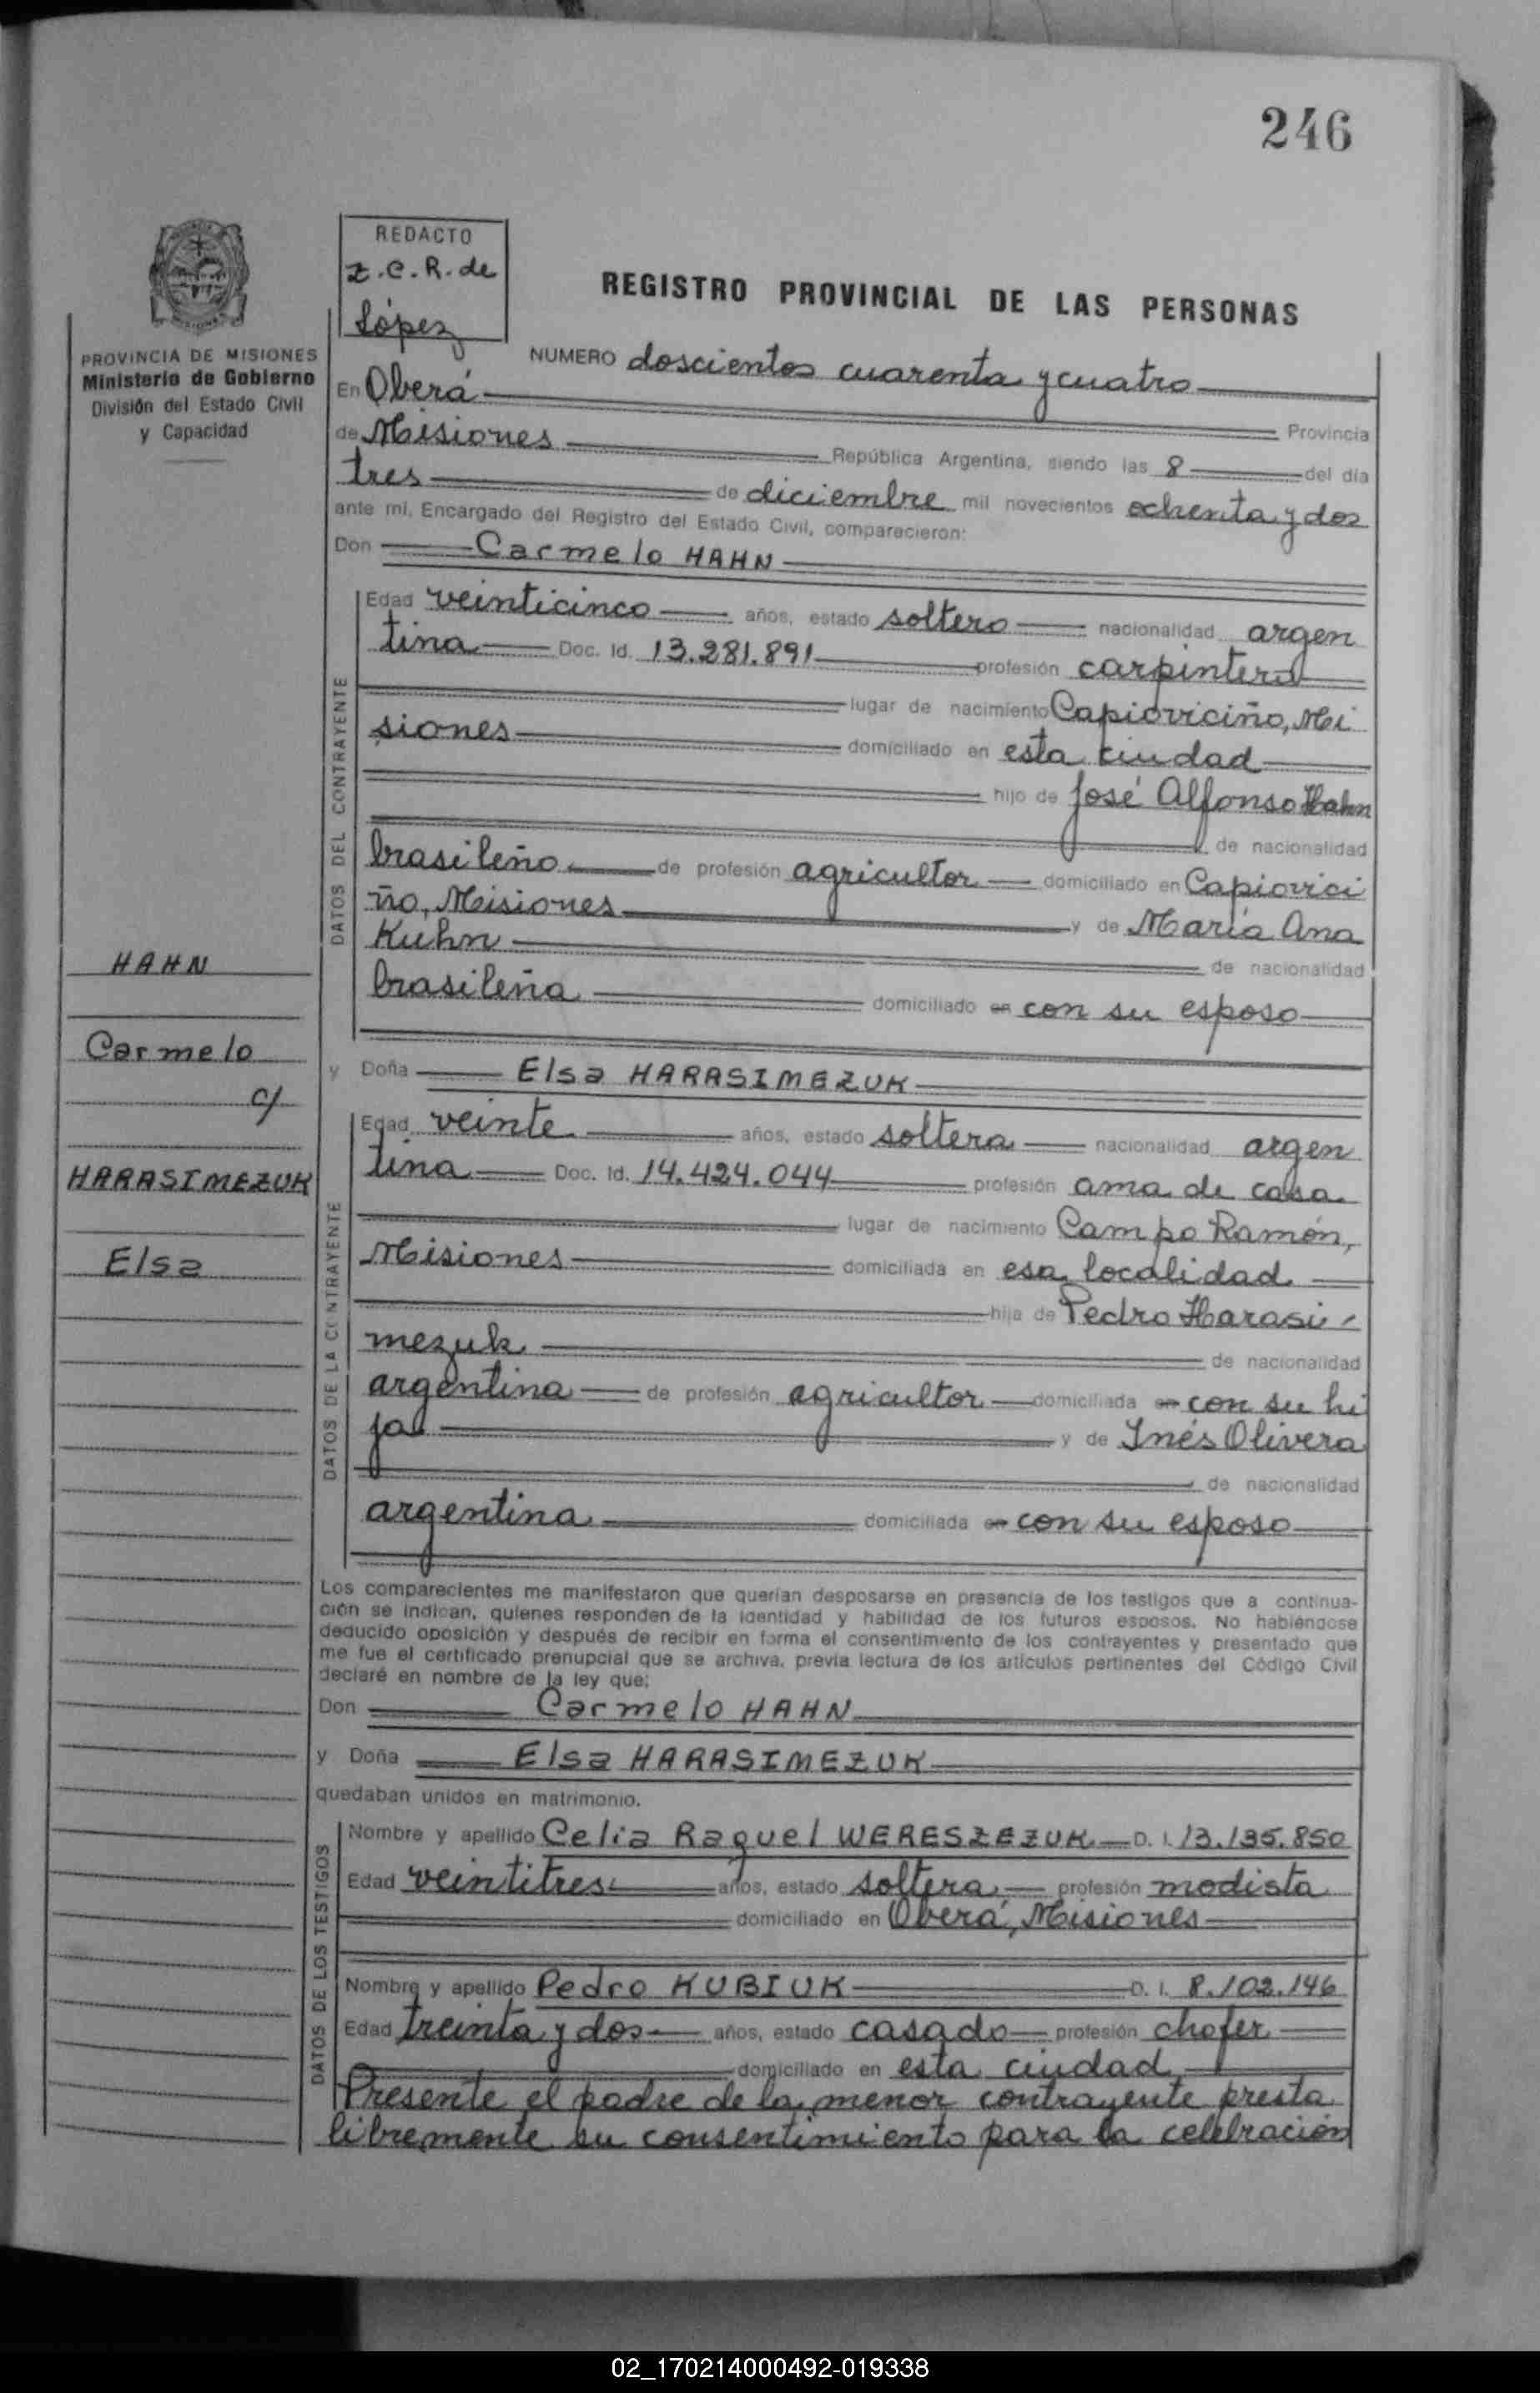 246
REDACTO
Z.C.R. de
López
REGISTRO PROVINCIAL DE LAS PERSONAS
PROVINCIA DE MISIONES
Ministerio de Gobierno
División del Estado Civil
y Capacidad
NUMERO doscientos cuarenta y cuatro
En Oberá
Provincia
de Misiones República Argentina, siendo las 8 del día
tres de diciembre mil novecientos ochenta y dos
ante mí, Encargado del Registro del Estado Civil, comparecieron:
Don Carmelo HAHN
DATOS DEL CONTRAYENTE
Edad veinticinco años, estado soltero nacionalidad argen
tina Doc. Id. 13.281.891 profesión carpintero
lugar de nacimiento Capioviciño, Mi
siones domiciliado en esta ciudad
hijo de José Alfonso Hahn
de nacionalidad
brasileño de profesión agricultor domiciliado en Capiovici
ño, Misiones y de María Ana
Kuhn de nacionalidad
brasileña domiciliado en con su esposo
HAHN
Carmelo
c/
HARASIMEZUK
Elsa
y Doña Elsa HARASIMEZUK
DATOS DE LA CONTRAYENTE
Edad veinte años, estado soltera nacionalidad argen
tina Doc. Id. 14.424.044 profesión ama de casa
lugar de nacimiento Campo Ramón,
Misiones domiciliada en esa localidad
hija de Pedro Harasi-
mezuk de nacionalidad
argentina de profesión agricultor domiciliada en con su hi
ja y de Inés Olivera
de nacionalidad
argentina domiciliada en con su esposo
Los comparecientes me manifestaron que querían desposarse en presencia de los testigos que a continua-
ción se indican, quienes responden de la identidad y habilidad de los futuros esposos. No habiéndose
deducido oposición y después de recibir en forma el consentimiento de los contrayentes y presentado que
me fue el certificado prenupcial que se archiva, previa lectura de los artículos pertinentes del Código Civil
declaré en nombre de la ley que:
Don Carmelo HAHN
y Doña Elsa HARASIMEZUK
quedaban unidos en matrimonio.
DATOS DE LOS TESTIGOS
Nombre y apellido Celia Raquel WERESZEZUK D. I. 13.135.850
Edad veintitres años, estado soltera profesión modista
domiciliado en Oberá, Misiones
Nombre y apellido Pedro KUBIUK D. I. 8.102.146
Edad treinta y dos años, estado casado profesión chofer
domiciliado en esta ciudad
Presente el padre de la menor contrayente presta
libremente su consentimiento para la celebración
02_170214000492-019338